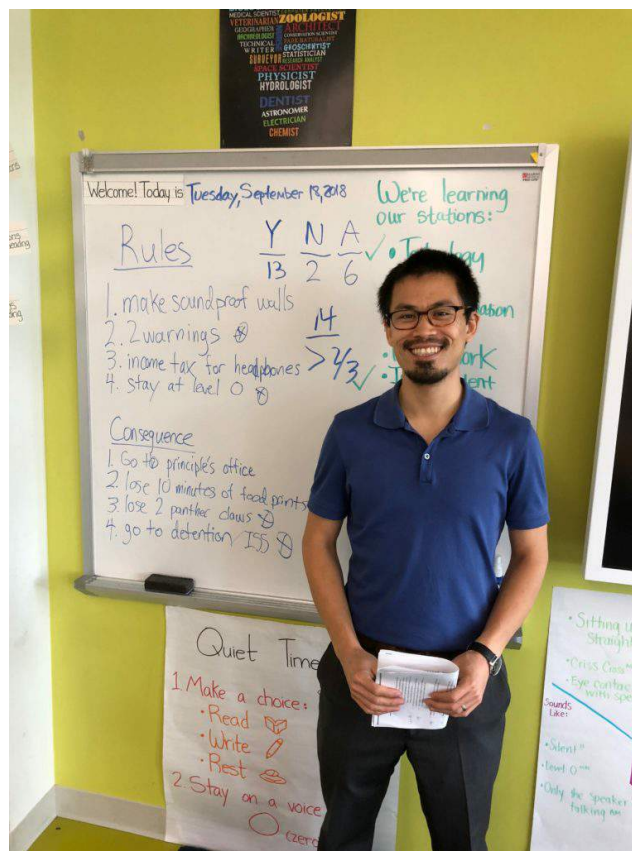 MEDICAL SCIENTIST
VETERINARIAN ZOOLOGIST
GEOGRAPHER ARCHITECT
ARCHAEOLOGIST CONSERVATION SCIENTIST
TECHNICAL PARK NATURALIST
WRITER GEOSCIENTIST
SURVEYOR STATISTICIAN
RESEARCH ANALYST
SPACE SCIENTIST
PHYSICIST
HYDROLOGIST
DENTIST
ASTRONOMER
ELECTRICIAN
CHEMIST
Welcome! Today is Tuesday, September 18, 2018
We're learning
our stations:
Rules
Y N A
13 2 6
1. make soundproof walls
2. 2 warnings
3. income tax for headphones
4. stay at level 0
14
> 2/3
Consequence
1. Go to principle's office
2. lose 10 minutes of food points
3. lose 2 panther claws
4. go to detention / ISS
Quiet Time
1. Make a choice:
• Read
• Write
• Rest
2. Stay on a voice
(zero
• Sitting u
Straight
• Criss Cross
• Eye contac
with spe
Sounds
Like:
• Silent
• Level 0
• Only the speaker
talking